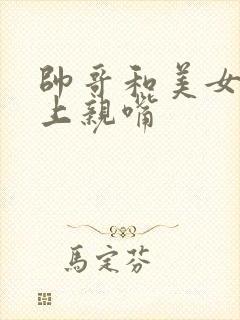 帥哥和美女
上親嘴
馬定芬